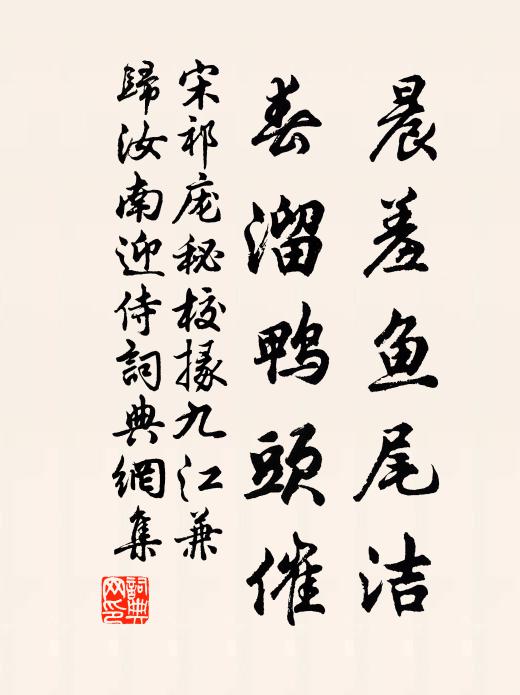 晨羞鱼尾洁
春溜鴨頭催
宋祁庞秘校掾九江兼
歸汝南迎侍詞典網集
詞典网印